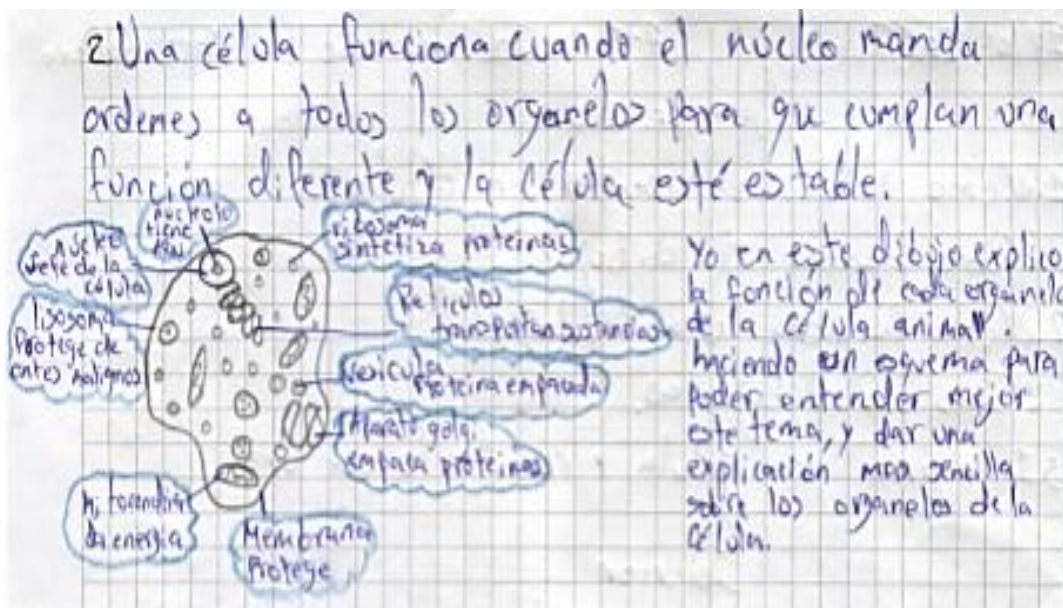 2. Una célula funciona cuando el núcleo manda
ordenes a todos los organelos para que cumplan una
función diferente y la célula esté estable.
nucleolo
tiene
núcleo
Jefe de la
célula
ribosoma
sintetiza proteinas
lisosoma
Protege de
entes malignos
Reticulos
transportan sustancias
vesicula
Proteina empacada
Aparato golgi
empaca proteinas
Mitocondria
da energia
Membrana
Protege
Yo en este dibujo explico
la función de cada organelo
de la célula animal.
haciendo un esquema para
poder entender mejor
este tema, y dar una
explicación mas sencilla
sobre los organelos de la
célula.